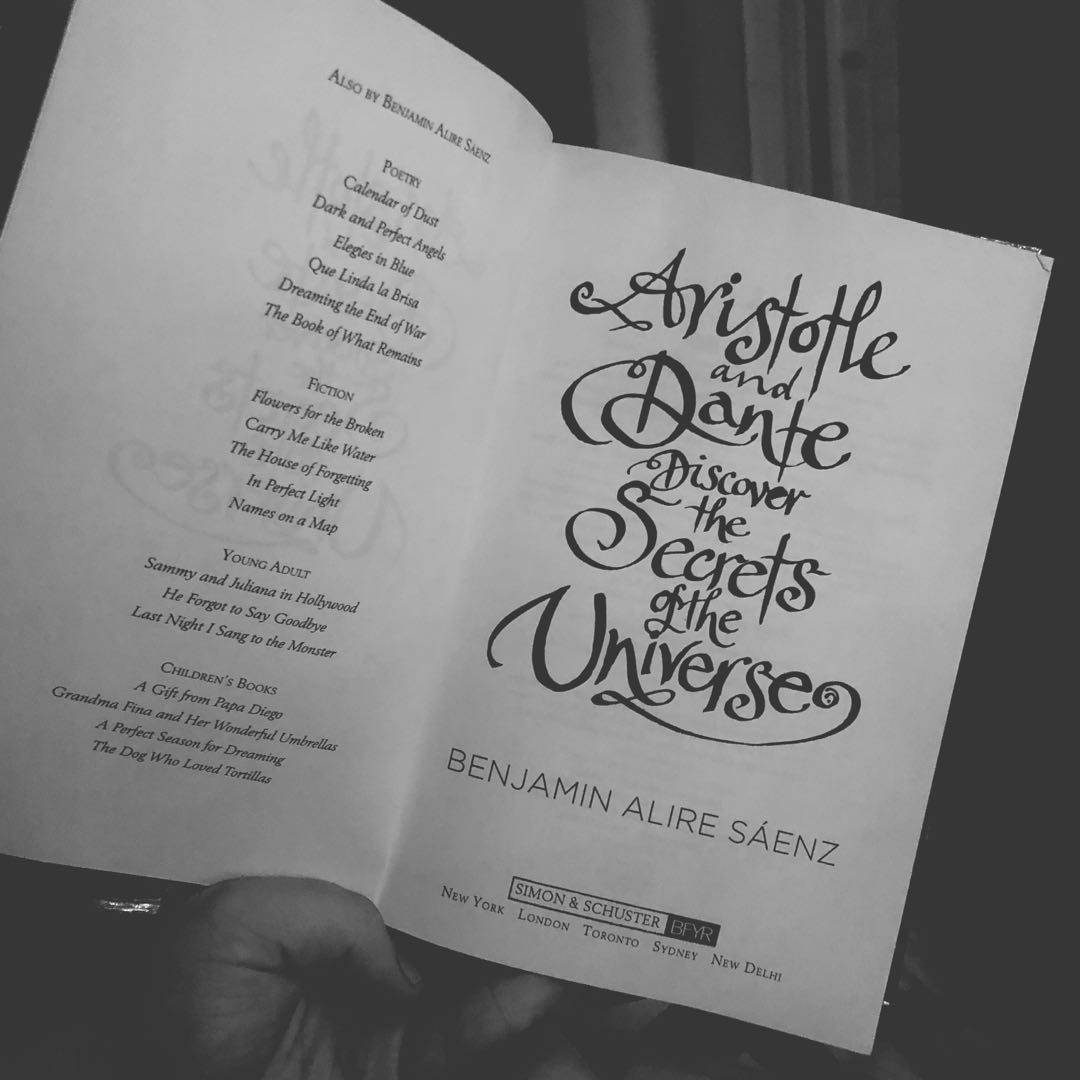 ALSO BY BENJAMIN ALIRE SÁENZ
POETRY
Calendar of Dust
Dark and Perfect Angels
Elegies in Blue
Que Linda la Brisa
Dreaming the End of War
The Book of What Remains
FICTION
Flowers for the Broken
Carry Me Like Water
The House of Forgetting
In Perfect Light
Names on a Map
YOUNG ADULT
Sammy and Juliana in Hollywood
He Forgot to Say Goodbye
Last Night I Sang to the Monster
CHILDREN'S BOOKS
A Gift from Papa Diego
Grandma Fina and Her Wonderful Umbrellas
A Perfect Season for Dreaming
The Dog Who Loved Tortillas
Aristotle
and
Dante
Discover
the
Secrets
of the
Universe
BENJAMIN ALIRE SÁENZ
SIMON & SCHUSTER BFYR
NEW YORK LONDON TORONTO SYDNEY NEW DELHI